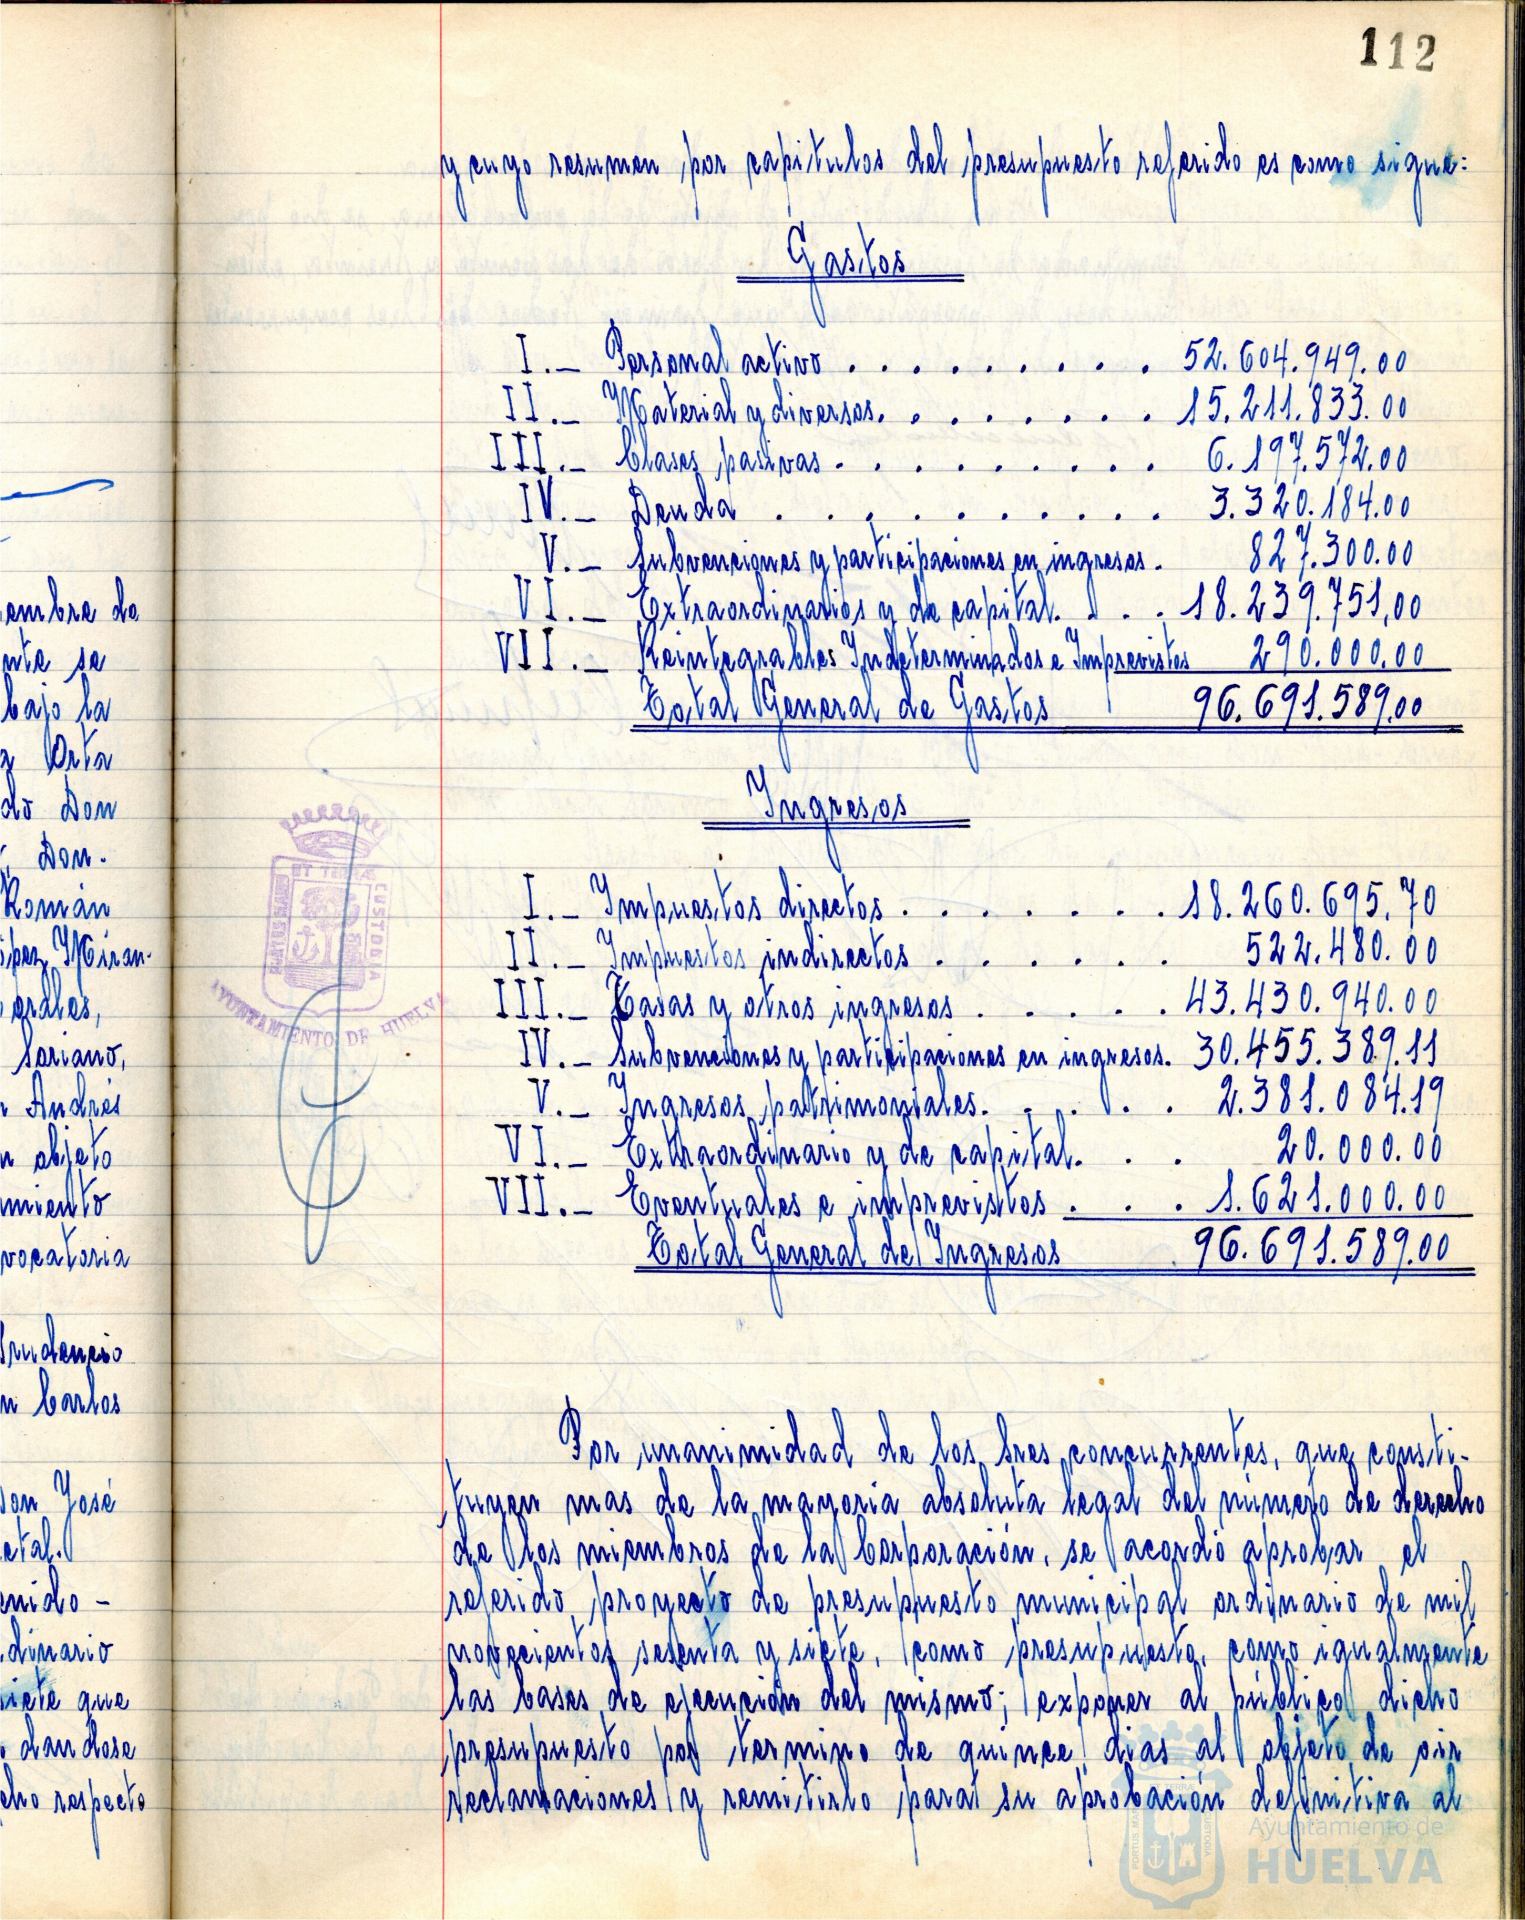 112
y cuyo resumen por capitulos del presupuesto referido es como sigue:
Gastos
I.- Personal activo . . . . . . . . . 52.604.949.00
II.- Material y diversos. . . . . . . . 15.211.833.00
III.- Clases pasivas . . . . . . . . . 6.197.572.00
IV.- Deuda . . . . . . . . . . 3.320.184.00
V.- Subvenciones y participaciones en ingresos. 827.300.00
VI.- Extraordinarios y de capital. . . . 18.239.751,00
VII.- Reintegrables Indeterminados e Imprevistos 290.000.00
Total General de Gastos 96.691.589.00
Ingresos
I.- Impuestos directos . . . . . . . 18.260.695.70
II.- Impuestos indirectos . . . . . . 522.480.00
III.- Tasas y otros ingresos . . . . . 43.430.940.00
IV.- Subvenciones y participaciones en ingresos. 30.455.389.11
V.- Ingresos patrimoniales. . . . . 2.381.084.19
VI.- Extraordinario y de capital. . . 20.000.00
VII.- Eventuales e imprevistos . . . 1.621.000.00
Total General de Ingresos 96.691.589.00
Por unanimidad de los Sres concurrentes, que consti-
tuyen mas de la mayoria absoluta legal del número de derecho
de los miembros de la Corporación, se acordó aprobar el
referido proyecto de presupuesto municipal ordinario de mil
novecientos sesenta y siete, como presupuesto, como igualmente
las bases de ejecución del mismo; exponer al público dicho
presupuesto por termino de quince dias al objeto de oir
reclamaciones y remitirlo para su aprobación definitiva al
embre de
nte se
bajo la
Orta
do Don
Don.
Román
pez Miran-
erales,
Soriano,
Andrés
objeto
miento
vocatoria
Prudencio
n Carlos
Don José
etal.
enido -
dinario
siete que
dandose
cho respecto
PORTUS MARIS ET TERRÆ CUSTODIA
AYUNTAMIENTO DE HUELVA
Ayuntamiento de
HUELVA